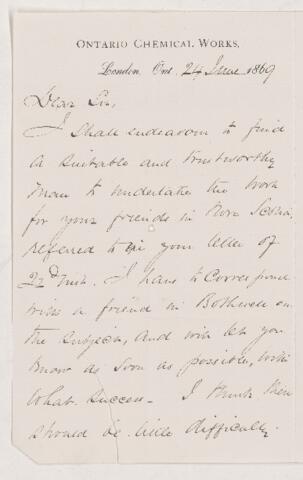 ONTARIO CHEMICAL WORKS,
London, Ont. 24 June 1869
Dear Sir,
I shall endeavour to find
a suitable and trustworthy
man to undertake the work
for your friends in Nova Scotia,
referred to in your letter of
22d inst. I have to correspond
with a friend in Bothwell on
the subject, and will let you
know as soon as possible, with
what success - I think there
should be little difficulty.